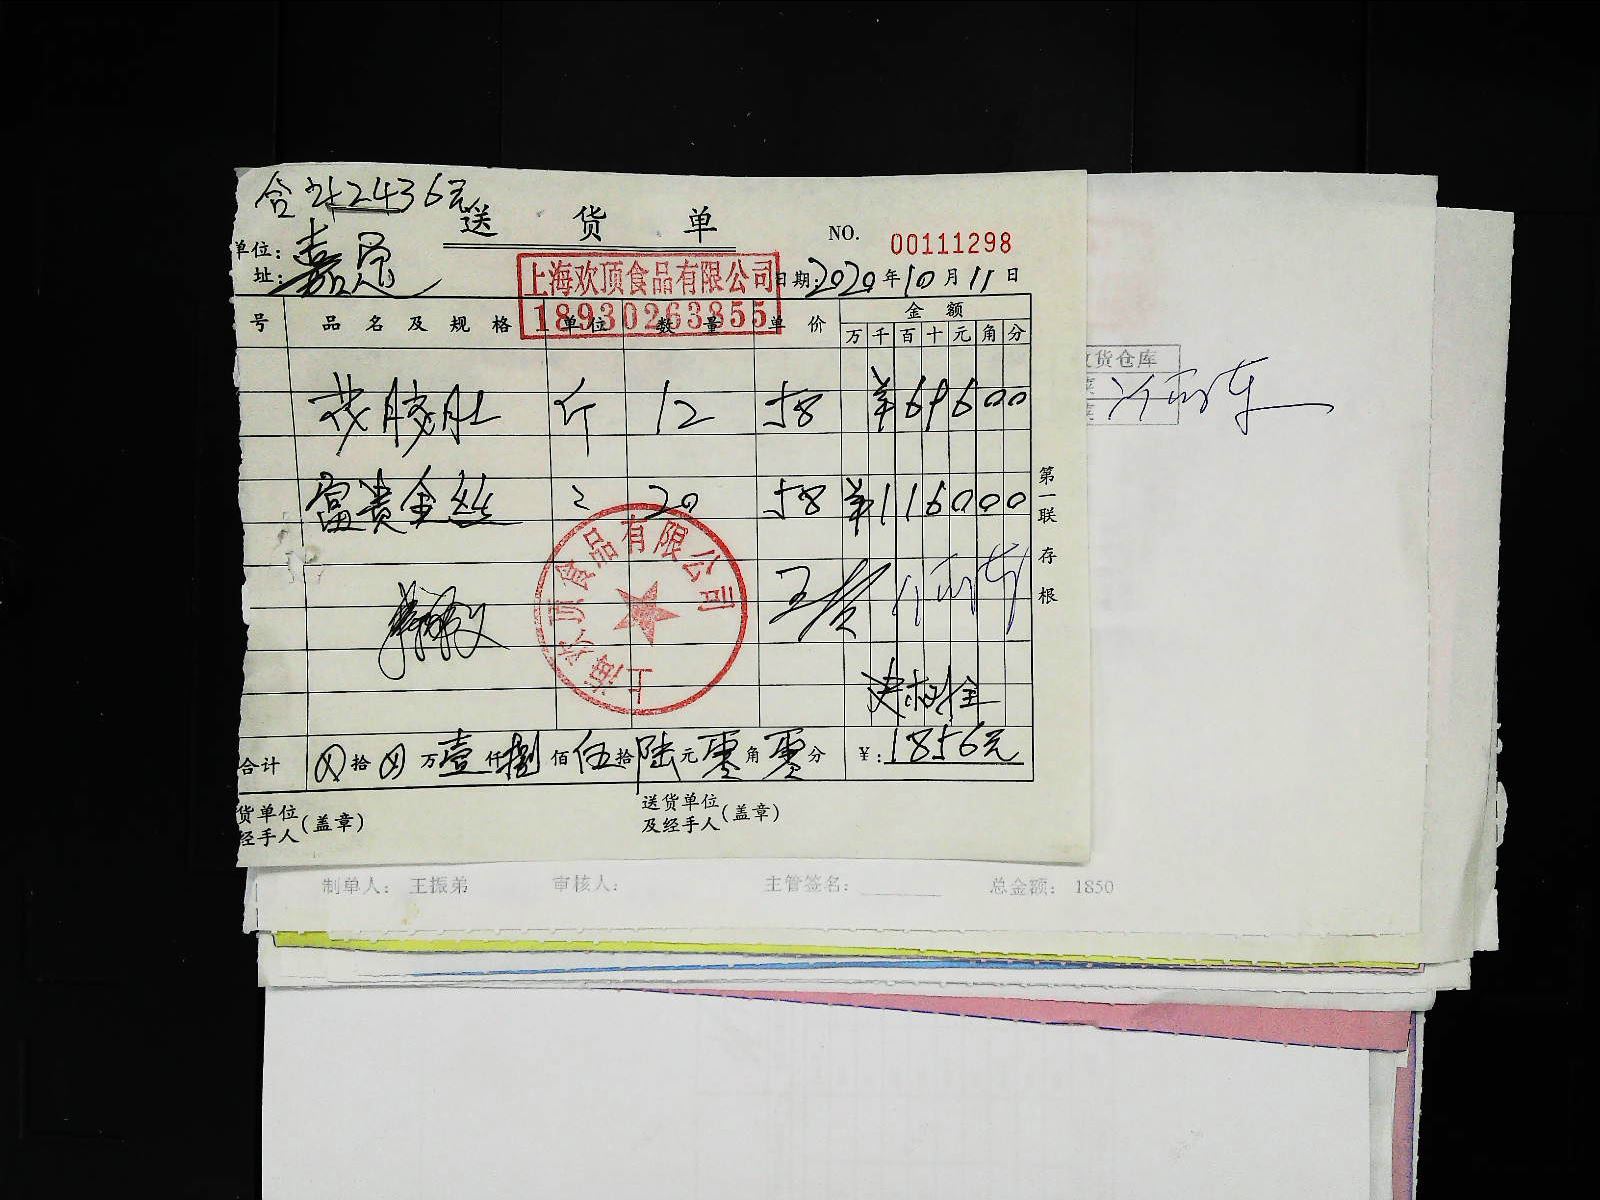 2436元
送货单
NO. 00111298
单位:
址:
嘉
上海欢顶食品有限公司
18930263855
日期:2020年10月11日
号 品名及规格 单位 数量 单价 金额
万千百十元角分
收货仓库
肚 斤 12 58 ¥69600
富贵金丝 〃 20 58 ¥116000
第一联 存根
上海欢顶食品有限公司
合计 ⊗拾⊗万壹仟捌佰伍拾陆元零角零分 ¥:1856元
货单位
经手人(盖章)
送货单位
及经手人(盖章)
制单人: 王振弟 审核人: 主管签名: 总金额: 1850